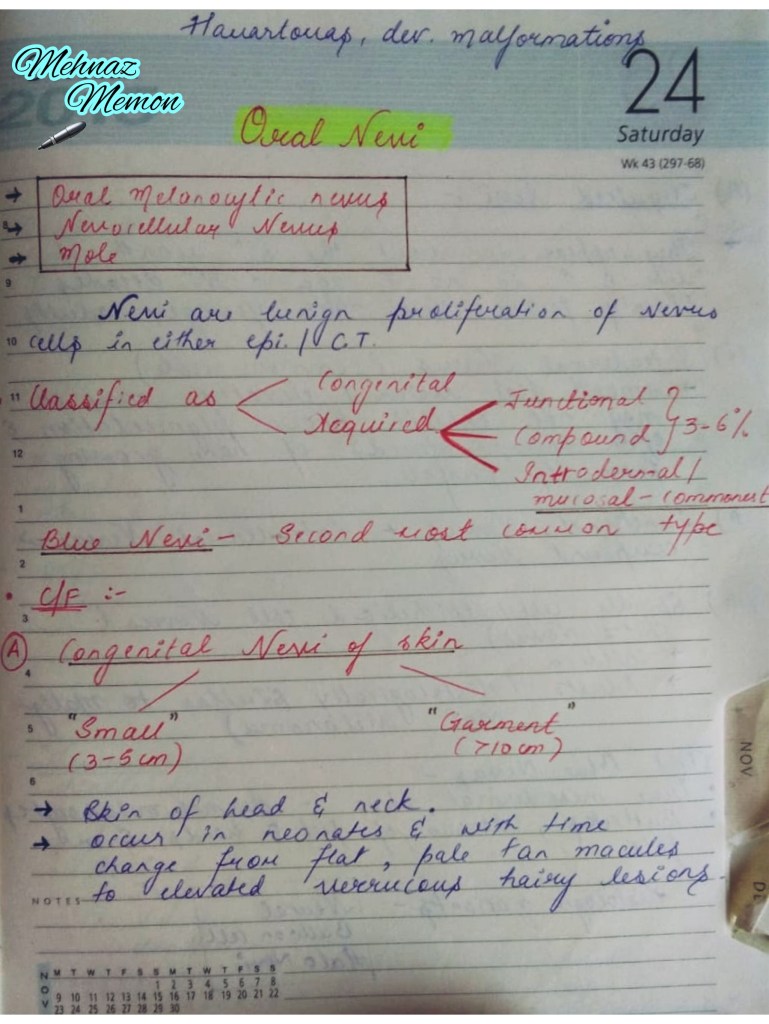 Hamartomas, dev. malformations
Mehnaz
Memon
24
Saturday
Wk 43 (297-68)
Oral Nevi
→ Oral Melanocytic nevus
→ Nevocellular Nevus
→ Mole
Nevi are benign proliferation of nevus
cells in either epi. / C.T.
Classified as
Congenital
Acquired
Junctional
Compound } 3-6%
Intradermal /
mucosal - commonest
Blue Nevi - Second most common type
• C/F :-
(A) Congenital Nevi of skin
"Small" "Garment"
(3-5 cm) (>10 cm)
→ Skin of head & neck.
→ occur in neonates & with time
change from flat, pale tan macules
to elevated verrucous hairy lesions.
8
9
10
11
12
1
2
3
4
5
6
NOTES
NOV
M T W T F S S M T W T F S S
1 2 3 4 5 6 7 8
9 10 11 12 13 14 15 16 17 18 19 20 21 22
23 24 25 26 27 28 29 30
NOV